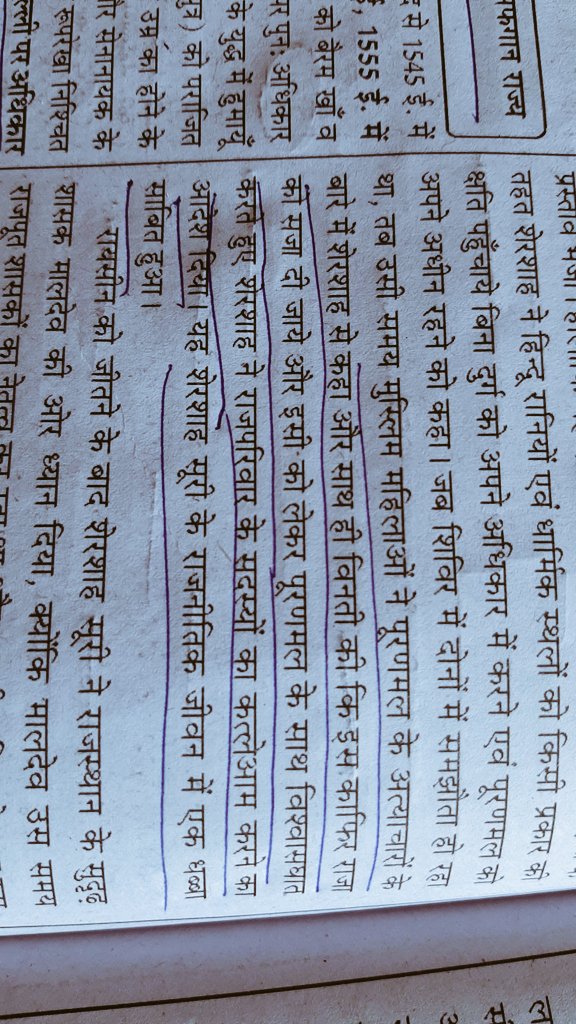 प्रस्ताव भेजा।
तहत शेरशाह ने हिन्दू रानियों एवं धार्मिक स्थलों को किसी प्रकार की
क्षति पहुँचाये बिना दुर्ग को अपने अधिकार में करने एवं पूरणमल को
अपने अधीन रहने को कहा। जब शिविर में दोनों में समझौता हो रहा
था, तब उसी समय मुस्लिम महिलाओं ने पूरणमल के अत्याचारों के
बारे में शेरशाह से कहा और साथ ही विनती की कि इस काफिर राजा
को सजा दी जाये और इसी को लेकर पूरणमल के साथ विश्वासघात
करते हुए शेरशाह ने राजपरिवार के सदस्यों का कत्लेआम करने का
आदेश दिया। यह शेरशाह सूरी के राजनीतिक जीवन में एक धब्बा
साबित हुआ।
रायसीन को जीतने के बाद शेरशाह सूरी ने राजस्थान के सुदृढ़
शासक मालदेव की ओर ध्यान दिया, क्योंकि मालदेव उस समय
राजपूत शासकों का नेतृत्व कर रहा था
राज्य
से 1545 ई. में
ई., 1555 ई. में
को बैरम खाँ व
पर पुनः अधिकार
के युद्ध में हुमायूँ
पुत्र) को पराजित
उम्र का होने के
और सेनानायक के
रूपरेखा निश्चित
पर अधिकार